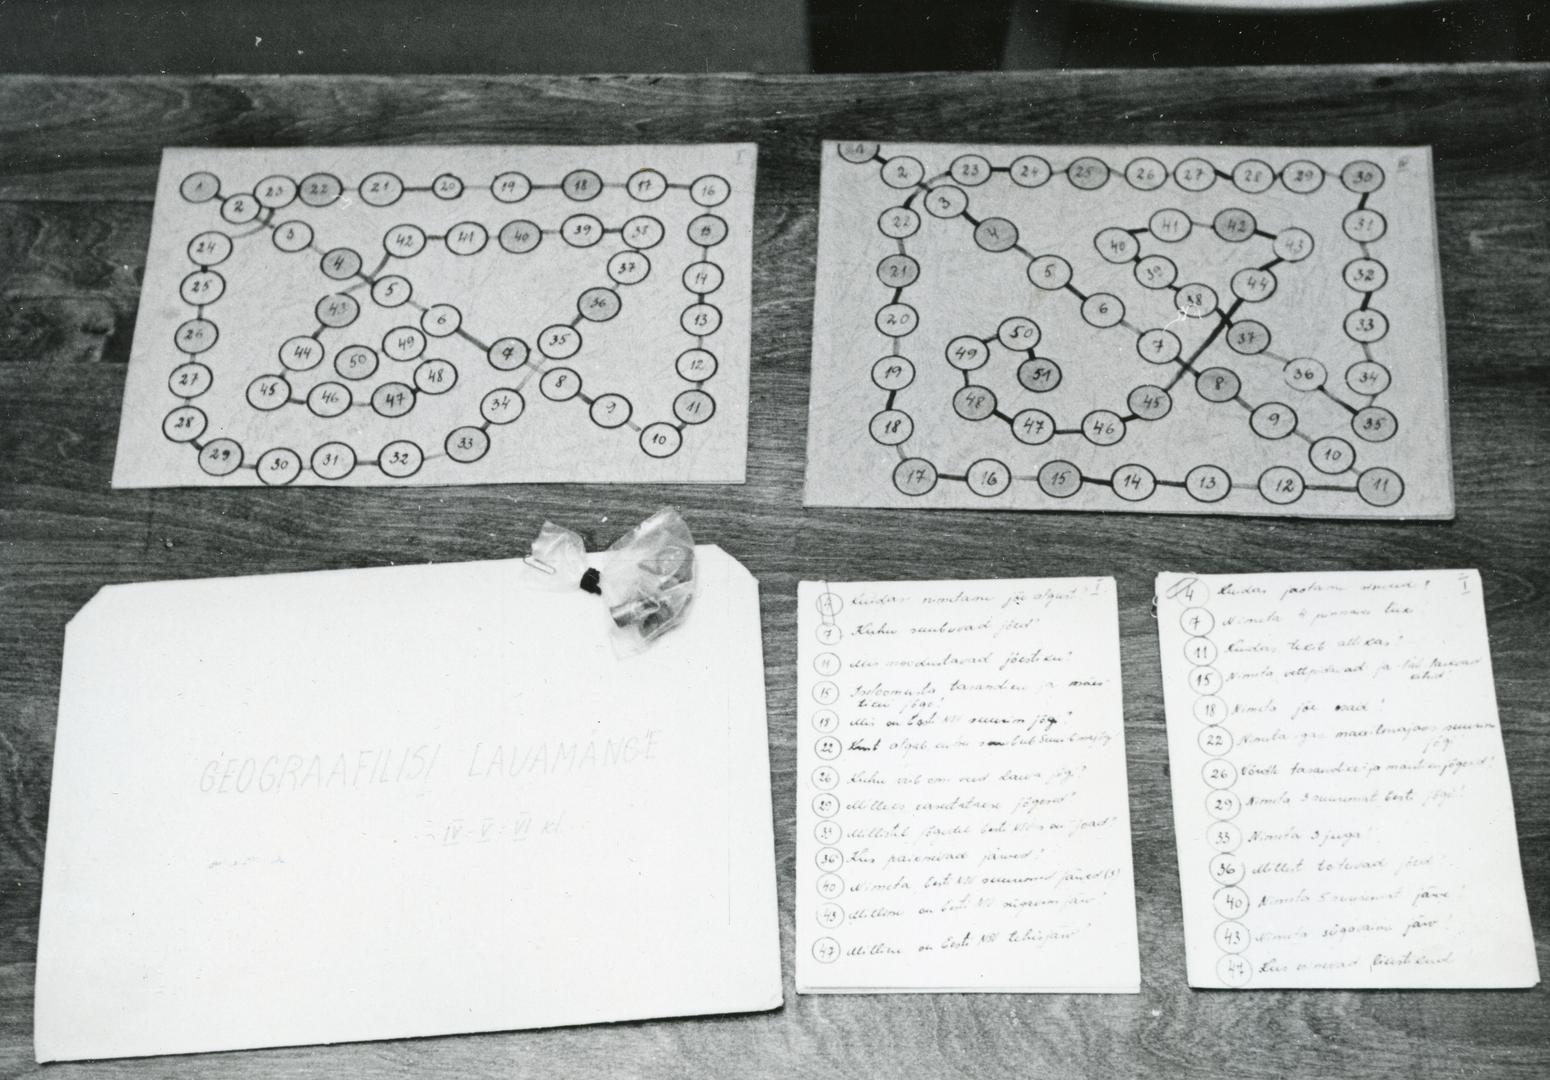 I
1 2 23 22 21 20 19 18 17 16
3 42 41 40 39 38 15
24 4 37 14
25 43 5 36 13
26 44 50 49 6 7 35 12
27 45 46 47 48 8 11
28 34 9 10
29 30 31 32 33
II
1 2 23 24 25 26 27 28 29 30
22 3 41 42 43 31
21 4 5 40 39 44 32
20 6 38 37 33
19 49 50 51 7 8 36 34
18 48 47 46 45 9 35
17 16 15 14 13 12 10 11
GEOGRAAFILISI LAUAMÄNGE
IV - V - VI kl.
I
4 Kuidas nimetame jõe algust?
7 Kuhu suubuvad jõed?
11 Mis moodustavad jõestiku?
15 Iseloomusta tasandiku ja mäes-
tiku jõge!
18 Mis on Eesti NSV suurim jõgi?
22 Kust algab ja kuhu suubub
26 Kuhu viib oma veed jõgi?
29 Milleks kasutatakse jõgesid?
33 Millistel jõgedel Eesti NSV-s on joad?
36 Kus paiknevad järved?
40 Nimeta Eesti NSV suuremad järved (3)
43 Milline on Eesti NSV sügavaim järv?
47 Milline on Eesti NSV tehisjärv?
I
4 Kuidas jaotame
7 Nimeta 4
11 Kuidas tekib allikas?
15 Nimeta vettpidavad ja läbilaskvad
18 Nimeta jõe osad!
22 Nimeta igas maailmajaos suurim
jõgi
26 Võrdle tasandiku ja mäestiku jõgesid!
29 Nimeta 3 suuremat Eesti jõge!
33 Nimeta 3 juga!
36 Millest toituvad jõed?
40 Nimeta 5 suuremat järve!
43 Nimeta sügavaim järv!
47 Kus esinevad